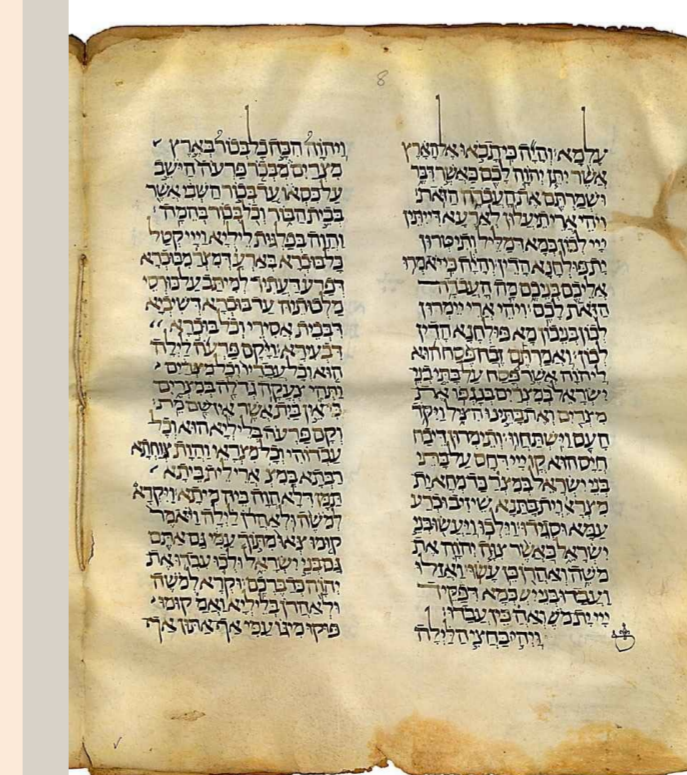 עלמא והיה כי תבאו אל הארץ
אשר יתן יהוה לכם כאשר דבר
ושמרתם את העבדה הזאת
ויהי ארי תיעלון לארעא דייתין
ייי לכון כמא דמליל ותיטרון
ית פולחנא הדין והיה כי יאמרו
אליכם בניכם מה העבדה
הזאת לכם ויהי ארי יימרון
לכון בניכון מא פולחנא הדין
לכון ואמרתם זבח פסח הוא
ליהוה אשר פסח על בתי בני
ישראל במצרים בנגפו את
מצרים ואת בתינו הציל ויקד
העם וישתחוו ותימרון דיבח
חיס הוא קד ייי דחס על בתי
בני ישראל במצר כד מחא ית
מצרא וית בתנא שיזיב וכרע
עמא וסגידו וילכו ויעשו בני
ישראל כאשר צוה יהוה את
משה ואהרן כן עשו ואזלו
ועבדו בני יש כמא דפקיד
ייי ית מש ואה כין עבדו
ויהי בחצי הלילה
ויהוה הכה כל בכור בארץ
מצרים מבכר פרעה הישב
על כסאו עד בכור השבי אשר
בבית הבור וכל בכור בהמה
והוה בפלגות ליליא וייי קטל
כל בוכרא בארעא דמצר מבוכרא
דפרעה דעתיד למיתב על כורסי
מלכותיה עד בוכרא דשיביא
דבבית אסירי וכל בוכרא
דבעירא ויקם פרעה לילה
הוא וכל עבדיו וכל מצרים
ותהי צעקה גדלה במצרים
כי אין בית אשר אין שם מת
וקם פרעה בליליא הוא וכל
עבדוהי וכל מצראי והות צוחתא
רבתא במצ ארי לית ביתא
תמן דלא הוה ביה מיתא ויקרא
למשה ולאהרן לילה ויאמר
קומו צאו מתוך עמי גם אתם
גם בני ישראל ולכו עבדו את
יהוה כדברכם וקרא למשה
ולאהרן בליליא ואמ קומו
פוקו מיגו עמי אף אתון אף
8